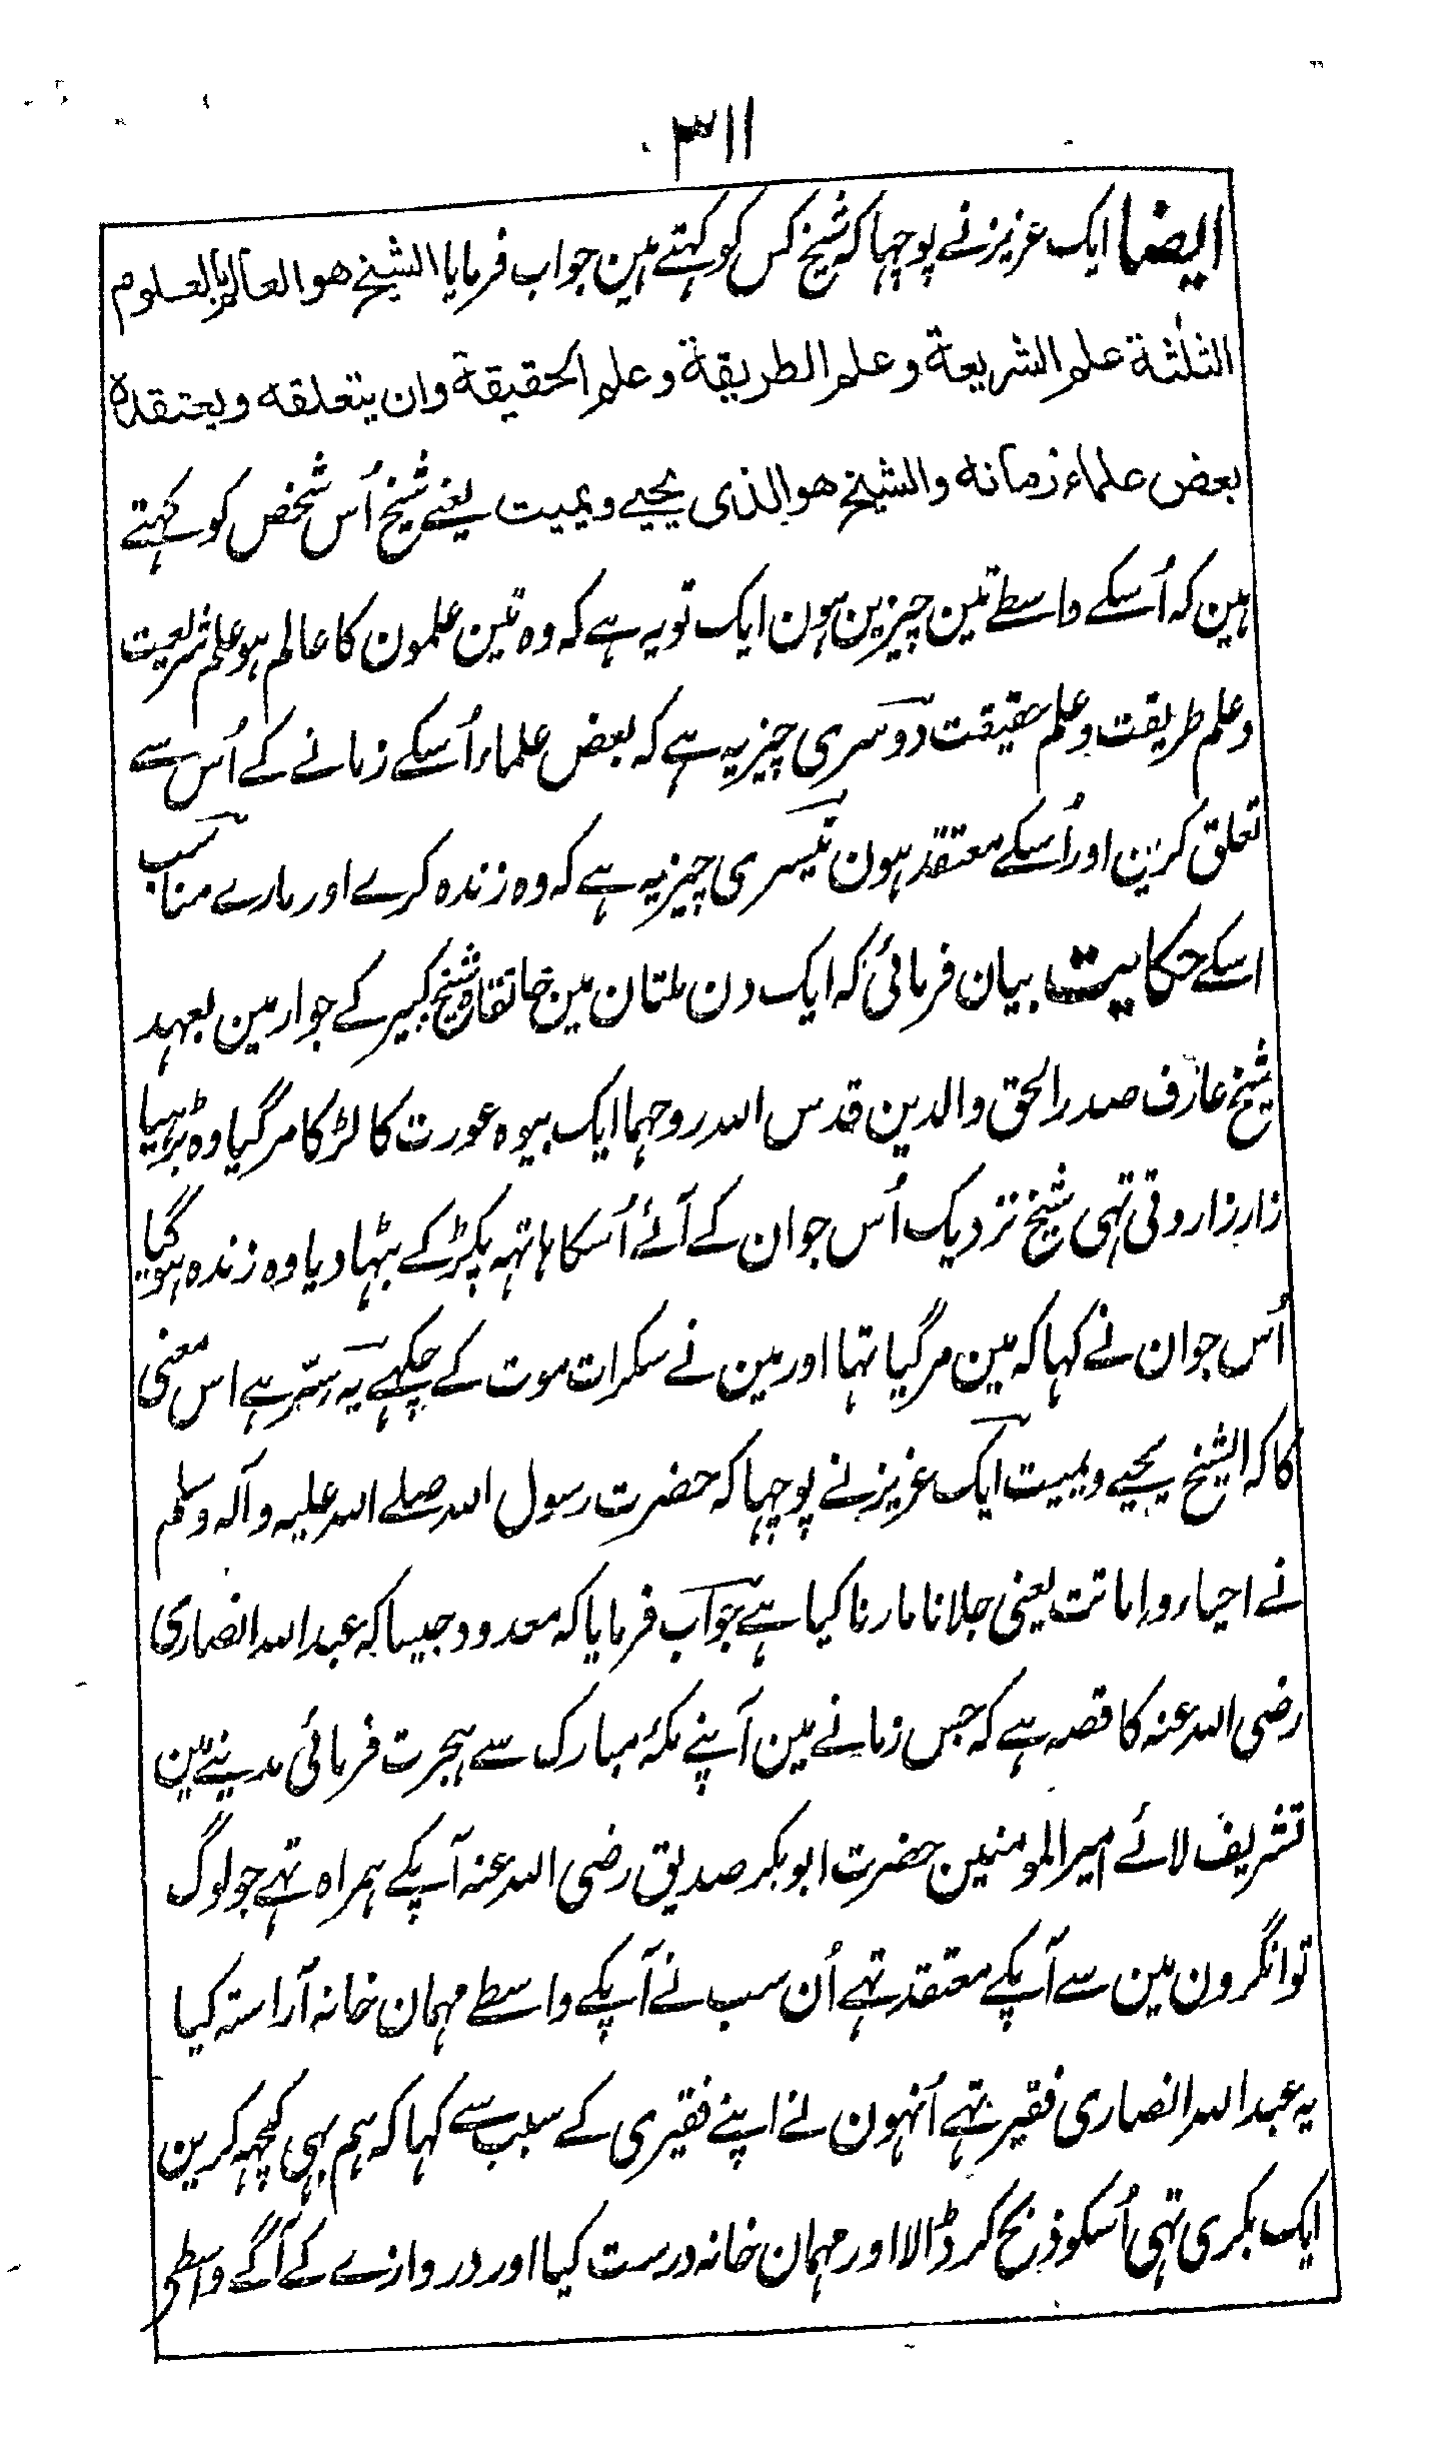 ٣١١
ایضا ایک عزیز نے پوچہا کہ شیخ کس کو کہتے ہین جواب فرمایا الشیخ ھو العالم بالعلوم
الثلٰثة علم الشریعة و علم الطریقة و علم الحقیقة وان یتعلقه و یعتقدہ
بعض علماء زمانه والشیخ ھو الذی یحیے و یمیت یعنے شیخ اُس شخص کو کہتے
ہین کہ اُسکے واسطے تین چیزین ہون ایک تو یہ ہے کہ وہ تین علمون کا عالم ہو علم شریعت
و علم طریقت و علم حقیقت دوسری چیز یہ ہے کہ بعض علماء اُسکے زمانے کے اُس سے
تعلق کرین اور اُسکے معتقد ہون تیسری چیز یہ ہے کہ وہ زندہ کرے اور مارے مناسب
اسکے حکایت بیان فرمائی کہ ایک دن ملتان مین خانقاہ شیخ کبیر کے جوار مین بعہد
شیخ عارف صدر الحق والدین قدس اللہ روحہما ایک بیوہ عورت کا لڑکا مرگیا وہ بڑہیا
زار زار روتی تہی شیخ نزدیک اُس جوان کے آئے اُسکا ہاتہہ پکڑکے بٹہا دیا وہ زندہ ہوگیا
اُس جوان نے کہا کہ مین مرگیا تہا اور مین نے سکرات موت کے چکہے یہ سِرّ ہے اس معنی
کا کہ الشیخ یحیے و یمیت ایک عزیز نے پوچہا کہ حضرت رسول اللہ صلے اللہ علیہ و آلہ وسلم
نے احیاء و اماتت یعنی جلانا مارنا کیا ہے جواب فرمایا کہ معدود جیسا کہ عبد اللہ انصاری
رضی اللہ عنہ کا قصہ ہے کہ جس زمانے مین آپنے مکۂ مبارک سے ہجرت فرمائی مدینے مین
تشریف لائے امیر المومنین حضرت ابوبکر صدیق رضی اللہ عنہ آپکے ہمراہ تہے جو لوگ
توانگرون مین سے آپکے معتقد تہے اُن سب نے آپکے واسطے مہمان خانہ آراستہ کیا
یہ عبد اللہ انصاری فقیر تہے اُنہون نے اپنے فقیری کے سبب سے کہا کہ ہم بہی کچہہ کرین
ایک بکری تہی اُسکو ذبح کر ڈالا اور مہمان خانہ درست کیا اور دروازے کے آگے واسطے